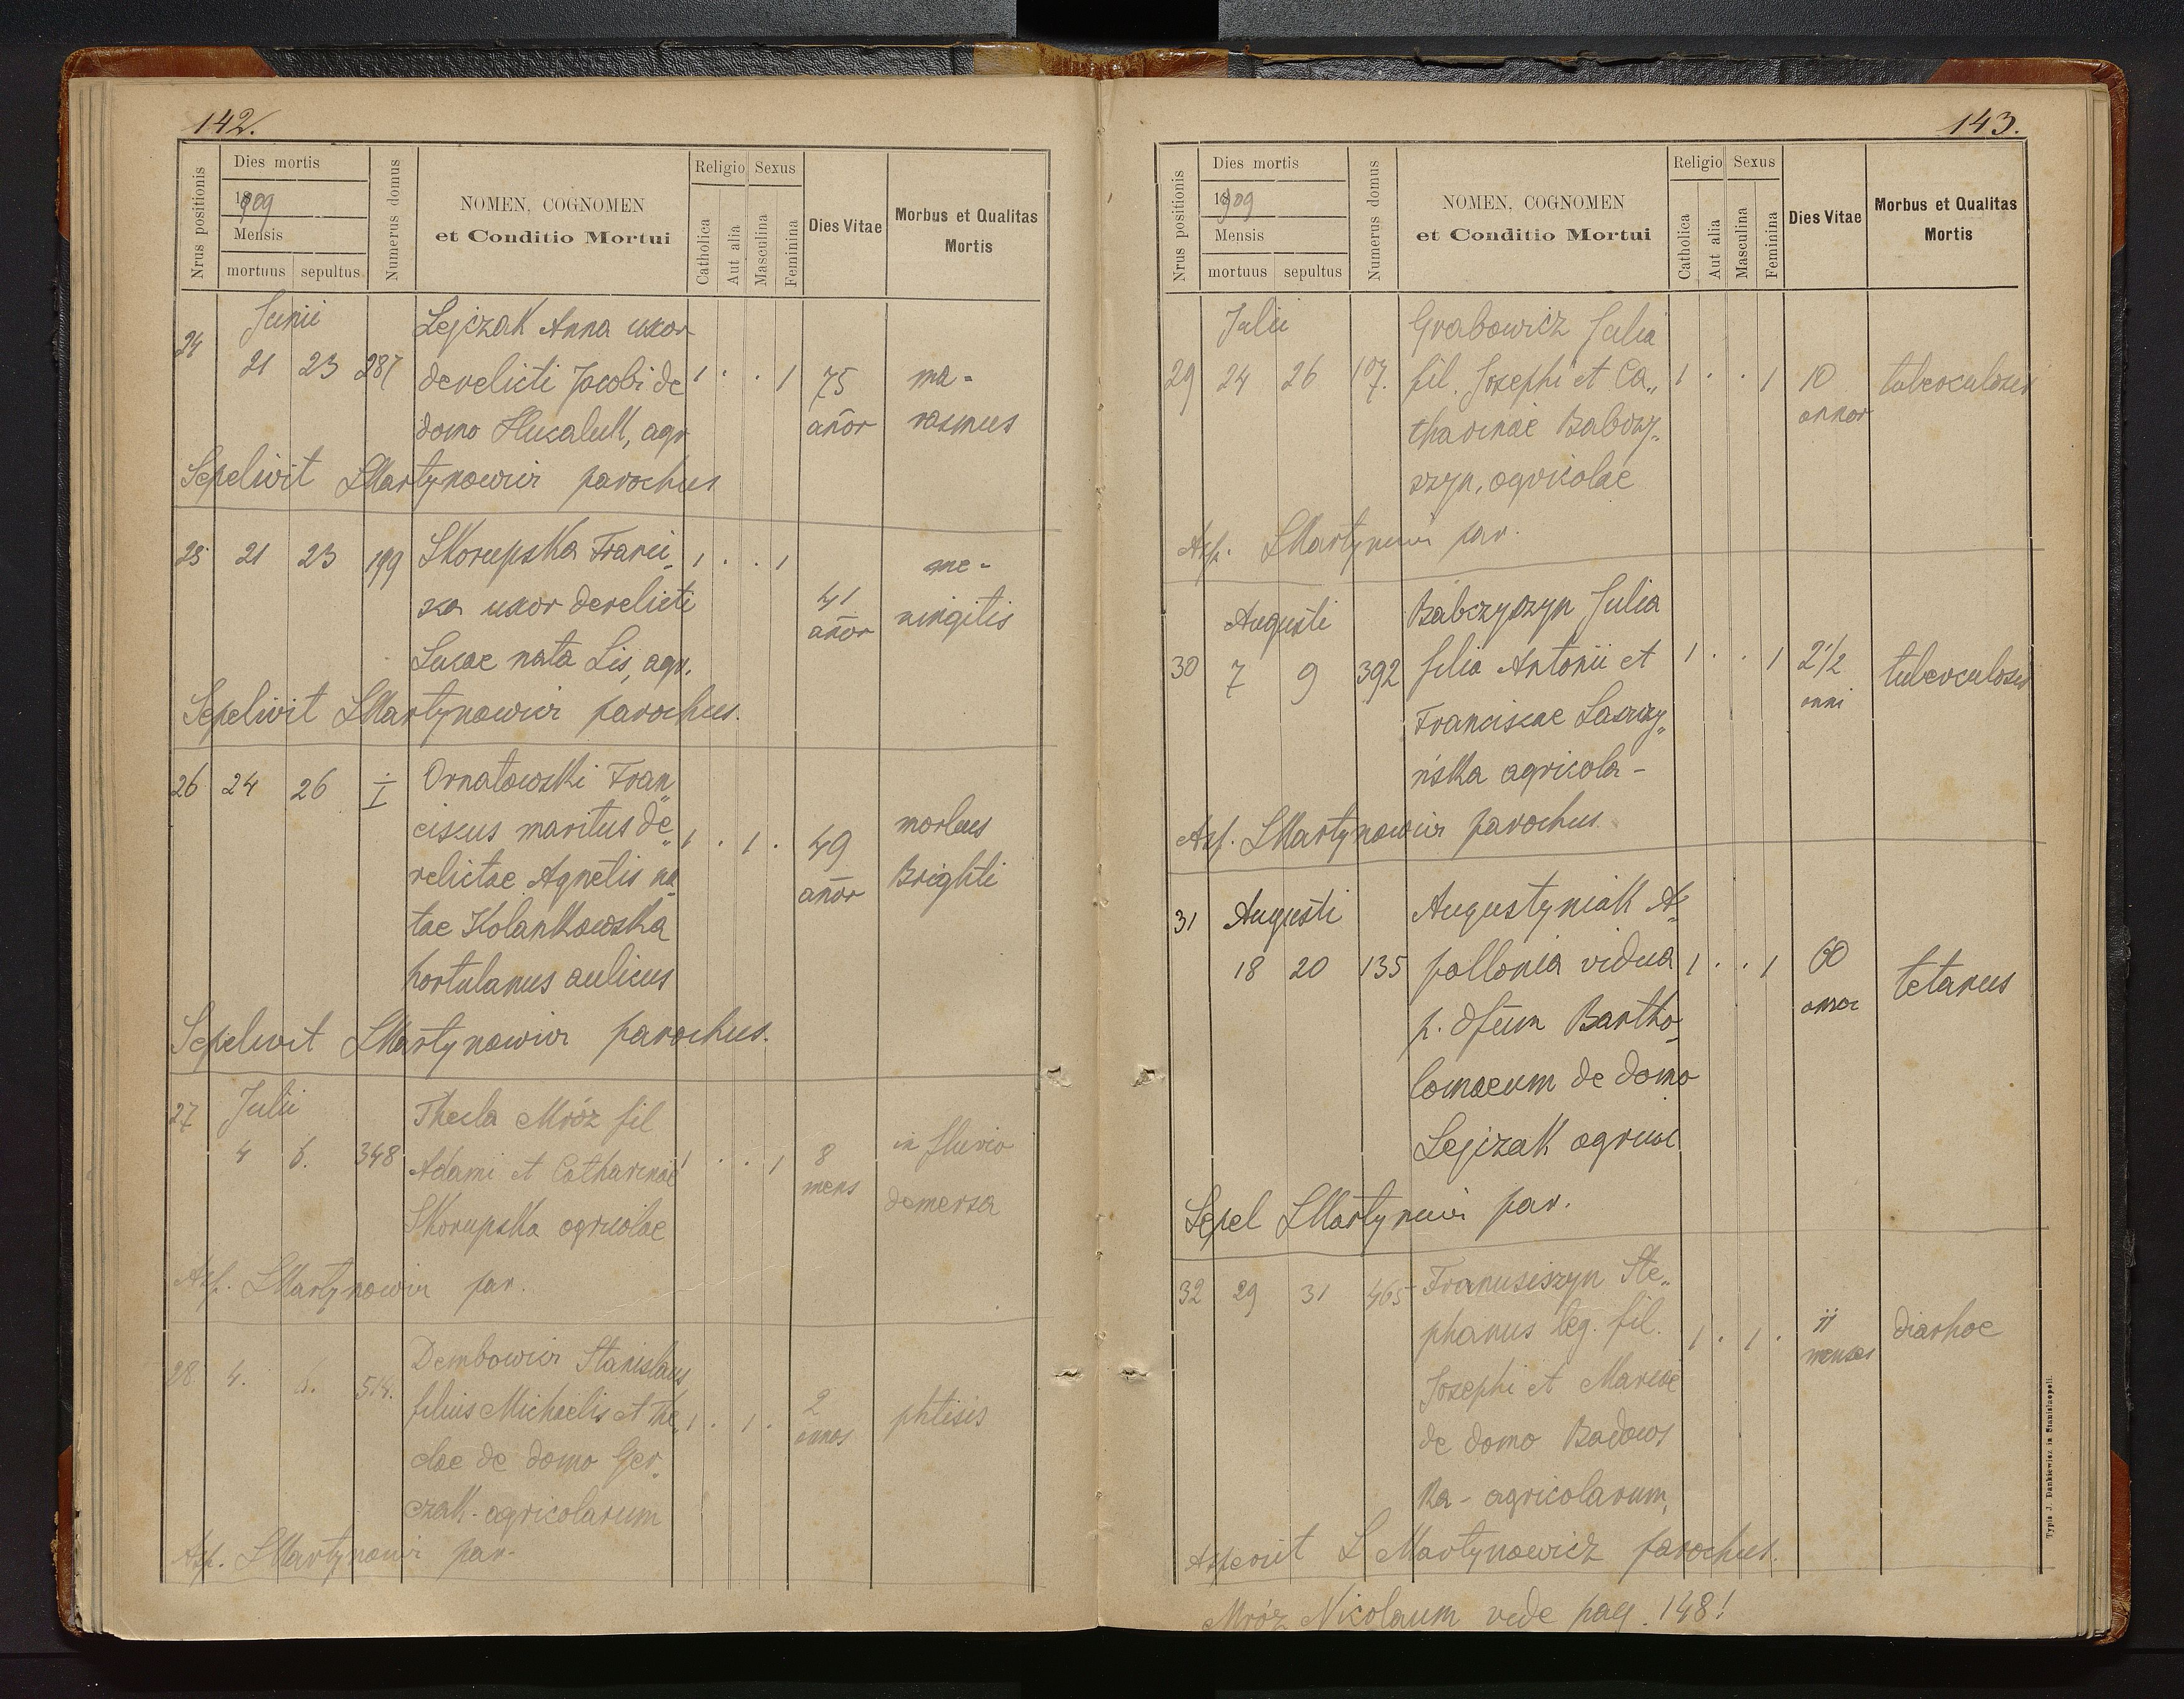 142.
Nrus positionis
Dies mortis
1909
Mensis
mortuus sepultus
Numerus domus
NOMEN, COGNOMEN
et Conditio Mortui
Religio Sexus
Catholica
Aut alia
Masculina
Feminina
Dies Vitae
Morbus et Qualitas
Mortis
24 Junii Lejczak Anna uxor
21 23 287 derelicti Jacobi de 1 . . 1 75 ma-
domo Hucaluk, agr añor rasmus
Sepelivit LMartynowicz parochus
25 21 23 199 Skorupska Franci 1 . . 1 me-
ska uxor derelicti 41 ningitis
Lucae nata Lis, agr. añor
Sepelivit LMartynowicz parochus.
26 24 26 Ornatowski Fran„
ciscus maritus de„ 1 . 1 . 49 morbus
relictae Agnetis na„ añor Brighti
tae Kolankowska
hortulanus aulicus
Sepelivit LMartynowicz parochus.
27 Julii Thecla Mróz fil
4 6. 348 Adami et Catharinae 1 . . 1 8 in fluvio
Skorupska agricolae mens demersa
Asp. LMartynowicz par.
28. 4. 6. 514. Dembowicz Stanislaus
filius Michaelis et The„ 1 . 1 . 2 phtisis
clae de domo Ger„ annos
czak - agricolarum
Asp. LMartynowicz par.
143.
Nrus positionis
Dies mortis
1909
Mensis
mortuus sepultus
Numerus domus
NOMEN, COGNOMEN
et Conditio Mortui
Religio Sexus
Catholica
Aut alia
Masculina
Feminina
Dies Vitae
Morbus et Qualitas
Mortis
Julii Grabowicz Julia
29 24 26 107. fil. Josephi et Ca„ 1 . . 1 10 tuberculosis
tharinae Babczy„ annor
szyn, agricolae
Asp. LMartynowicz par.
Augusti Babczyszyn Julia
30 7 9 392 filia Antonii et 1 . . 1 2 1/2 tuberculosis
Franciscae Laszczy„ anni
ńska agricola -
Asp. LMartynowicz parochus.
31 Augusti Augustyniak A„
18 20 135 pollonia vidua 1 . . 1 60 tetanus
p. dfūm Bartho„ annor
lomaeum de domo
Lejczak agricol
Sepel LMartynowicz par.
32 29 31 465 Franusiszyn Ste„
phanus leg. fil. 1 . 1 . 11 diarhoe
Josephi et Mariae menses
de domo Badows
ka - agricolarum,
Asperit L Martynowicz parochus.
Mróz Nicolaum vide pag. 148!
Typis J. Dankiewicz in Stanislaopoli.